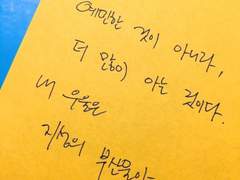 예민한 것이 아니라,
더 많이 아는 것이다.
내 우울은
지성의 부산물이